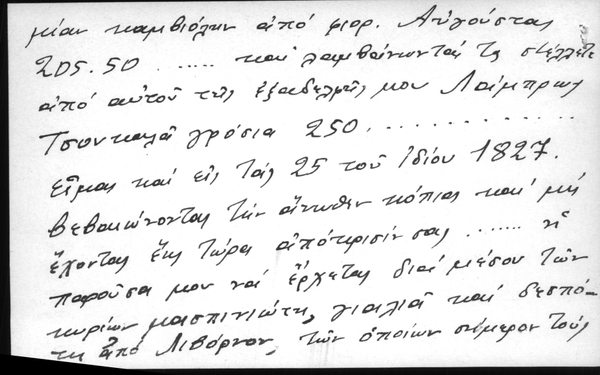 μίαν καμβιάλην ἀπό φιορ. Αὐγούστας
205.50 ..... καί λαμβάνωντάς τα στέλλετε
ἀπό αὐτοῦ τῆς ἐξαδελφῆς μου Λάμπρως
Τσουκαλᾶ γρόσια 250 ............
εἶμας καί εἰς τάς 25 τοῦ ἰδίου 1827.
βεβαιώνοντας τήν ἄνωθεν κόπιας καί μή
ἔχοντας ἕως τώρα ἀπόκρισίν σας ....... ἡ
παροῦσα μου νά ἔρχεται διά μέσου τῶν
κυρίων μασπινιώτη, γιαλιᾶ καί δεσπό-
τη ἀπό Λιβόρνον, τῶν ὁποίων σήμερον τούς